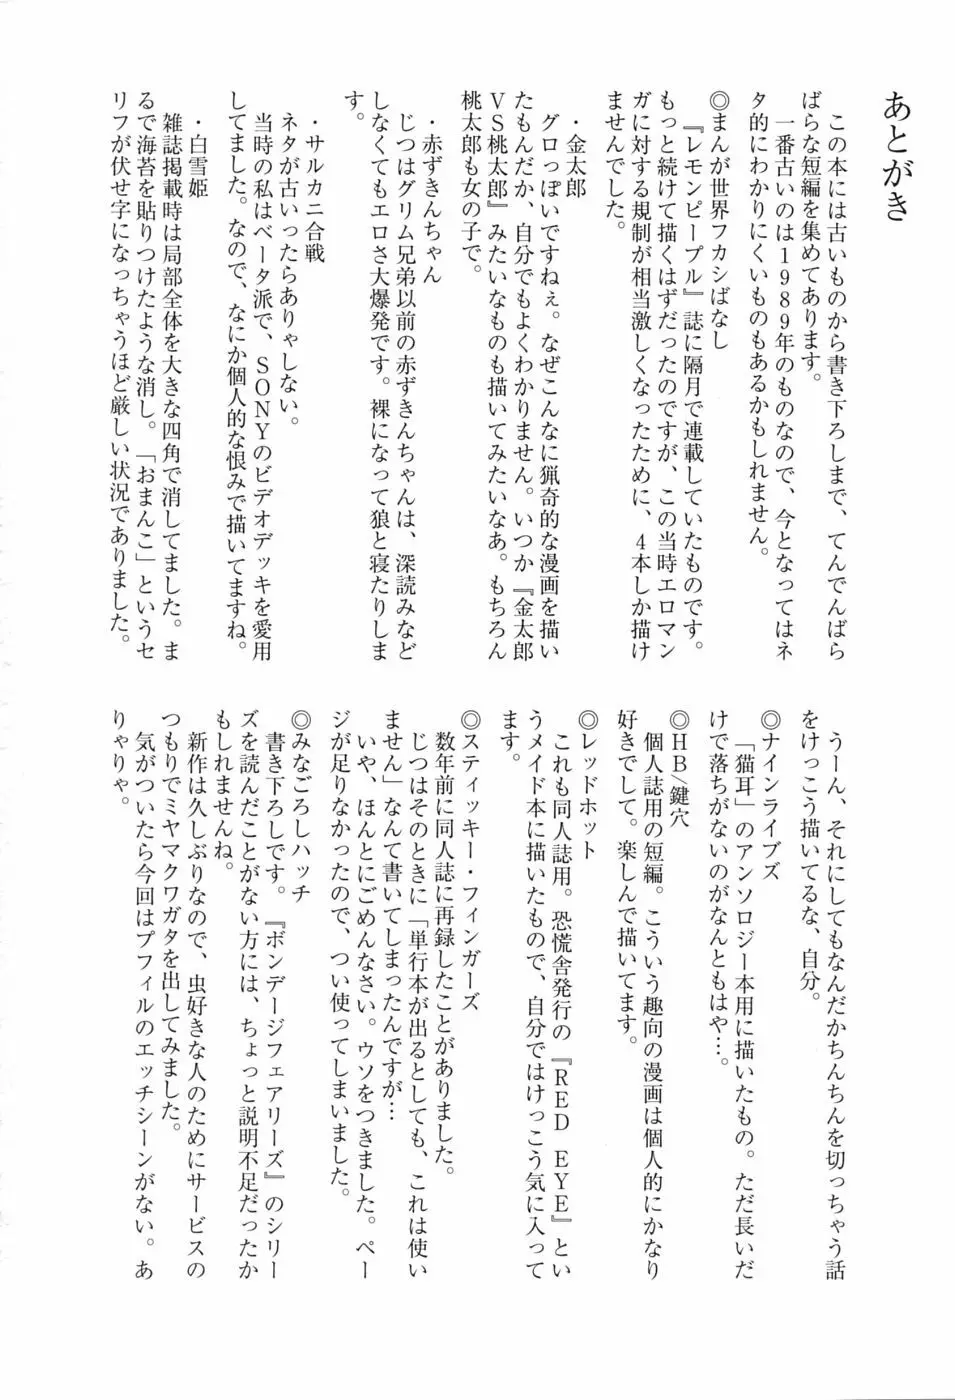 あとがき
　この本には古いものから書き下ろしまで、てんでんばら
ばらな短編を集めてあります。
　一番古いのは１９８９年のものなので、今となってはネ
タ的にわかりにくいものもあるかもしれません。
◎まんが世界フカシばなし
　『レモンピープル』誌に隔月で連載していたものです。
もっと続けて描くはずだったのですが、この当時エロマン
ガに対する規制が相当激しくなったために、４本しか描け
ませんでした。
・金太郎
　グロっぽいですねぇ。なぜこんなに猟奇的な漫画を描い
たもんだか、自分でもよくわかりません。いつか『金太郎
ＶＳ桃太郎』みたいなものも描いてみたいなあ。もちろん
桃太郎も女の子で。
・赤ずきんちゃん
　じつはグリム兄弟以前の赤ずきんちゃんは、深読みなど
しなくてもエロさ大爆発です。裸になって狼と寝たりしま
す。
・サルカニ合戦
　ネタが古いったらありゃしない。
　当時の私はベータ派で、ＳＯＮＹのビデオデッキを愛用
してました。なので、なにか個人的な恨みで描いてますね。
・白雪姫
　雑誌掲載時は局部全体を大きな四角で消してました。ま
るで海苔を貼りつけたような消し。「おまんこ」というセ
リフが伏せ字になっちゃうほど厳しい状況でありました。
　うーん、それにしてもなんだかちんちんを切っちゃう話
をけっこう描いてるな、自分。
◎ナインライブズ
　「猫耳」のアンソロジー本用に描いたもの。ただ長いだ
けで落ちがないのがなんともはや…。
◎ＨＢ/鍵穴
　個人誌用の短編。こういう趣向の漫画は個人的にかなり
好きでして。楽しんで描いてます。
◎レッドホット
　これも同人誌用。恐慌舎発行の『ＲＥＤ　ＥＹＥ』とい
うメイド本に描いたもので、自分ではけっこう気に入って
ます。
◎スティッキー・フィンガーズ
　数年前に同人誌に再録したことがありました。
　じつはそのときに「単行本が出るとしても、これは使い
ません」なんて書いてしまったんですが…
　いや、ほんとにごめんなさい。ウソをつきました。ペー
ジが足りなかったので、つい使ってしまいました。
◎みなごろしハッチ
　書き下ろしです。『ボンデージフェアリーズ』のシリー
ズを読んだことがない方には、ちょっと説明不足だったか
もしれませんね。
　新作は久しぶりなので、虫好きな人のためにサービスの
つもりでミヤマクワガタを出してみました。
　気がついたら今回はプフィルのエッチシーンがない。あ
りゃりゃ。